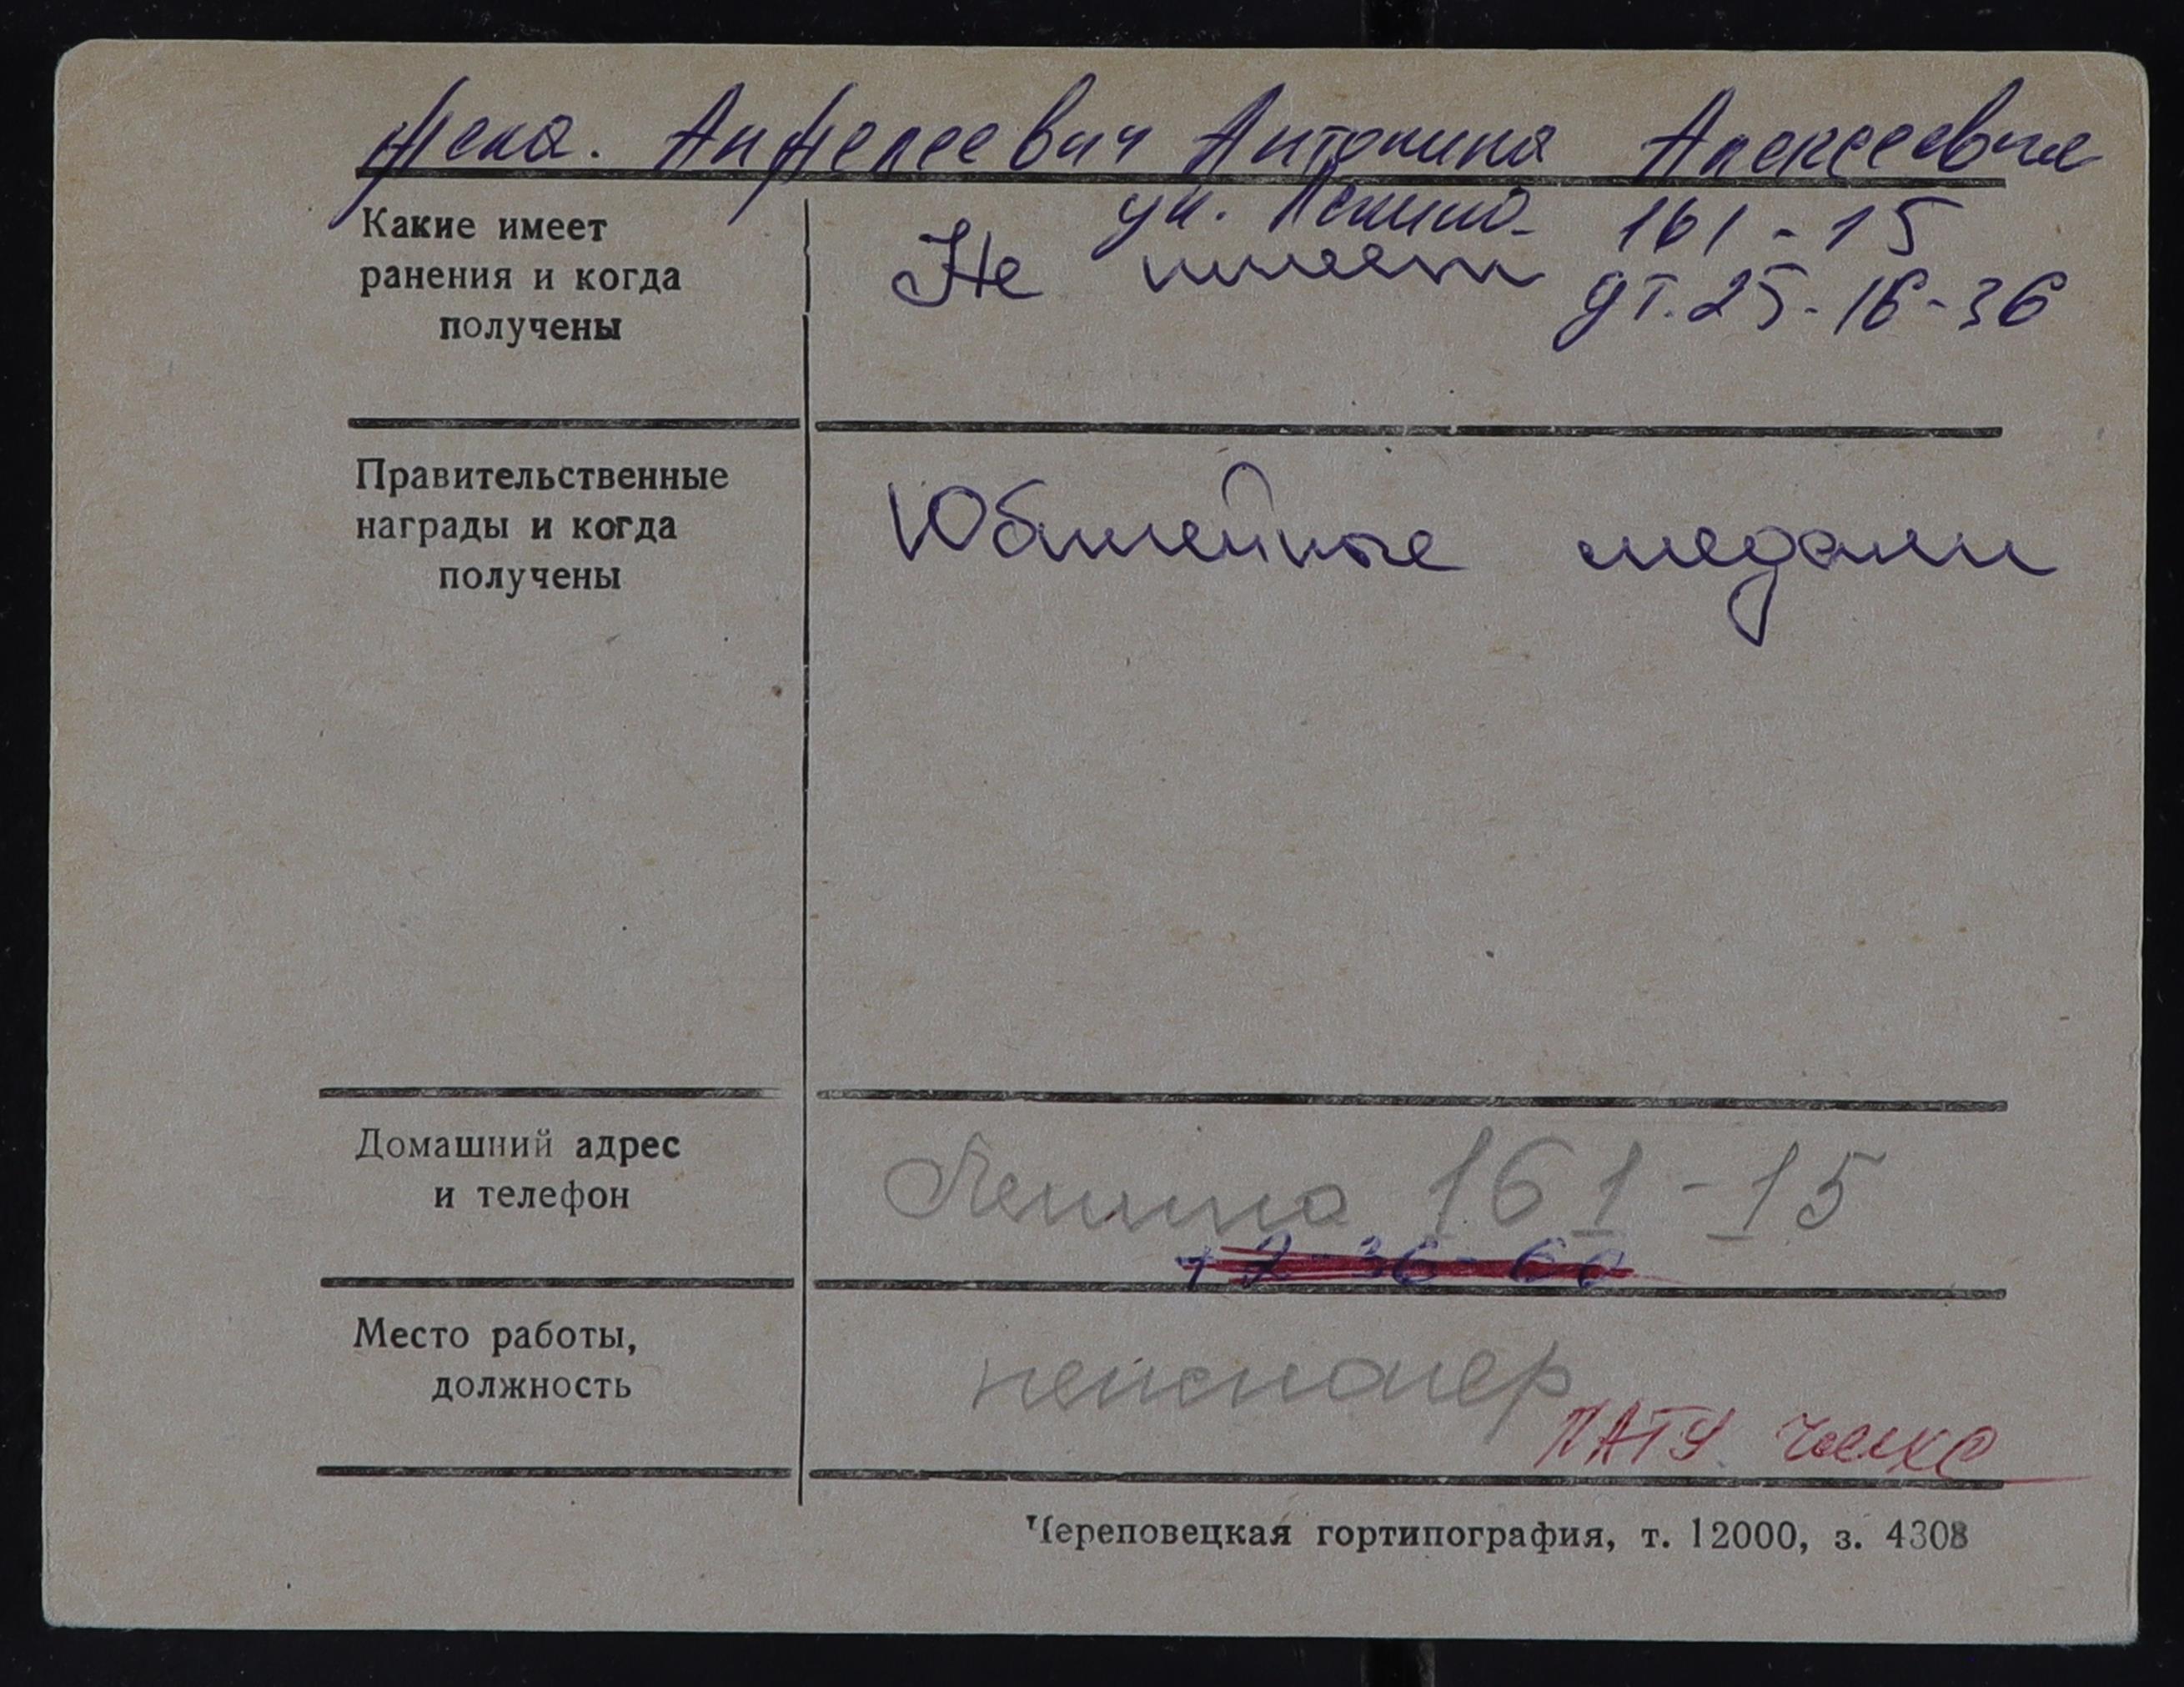 жена. Анжелеевич Антонина Алексеевна
ул. Ленина 161-15
Какие имеет
ранения и когда
получены
Не имеет
дт. 25-16-36
Правительственные
награды и когда
получены
Юбилейные медали
Домашний адрес
и телефон
Ленина 161-15
Место работы,
должность
пенсионер
ПАТУ
Череповецкая гортипография, т. 12000, з. 4308